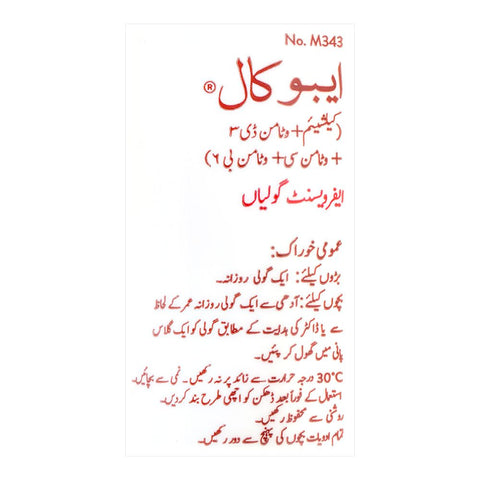 No. M343
ایبو کال ®
(کیلشیئم + وٹامن ڈی ۳
+ وٹامن سی + وٹامن بی ۶)
ایفرویسنٹ گولیاں
عمومی خوراک:
بڑوں کیلئے: ایک گولی روزانہ۔
بچوں کیلئے: آدھی سے ایک گولی روزانہ عمر کے لحاظ
سے یا ڈاکٹر کی ہدایت کے مطابق گولی کو ایک گلاس
پانی میں گھول کر پئیں۔
30°C درجہ حرارت سے زائد پر نہ رکھیں۔ نمی سے بچائیں۔
استعمال کے فوراً بعد ڈھکن کو اچھی طرح بند کردیں۔
روشنی سے محفوظ رکھیں۔
تمام ادویات بچوں کی پہنچ سے دور رکھیں۔